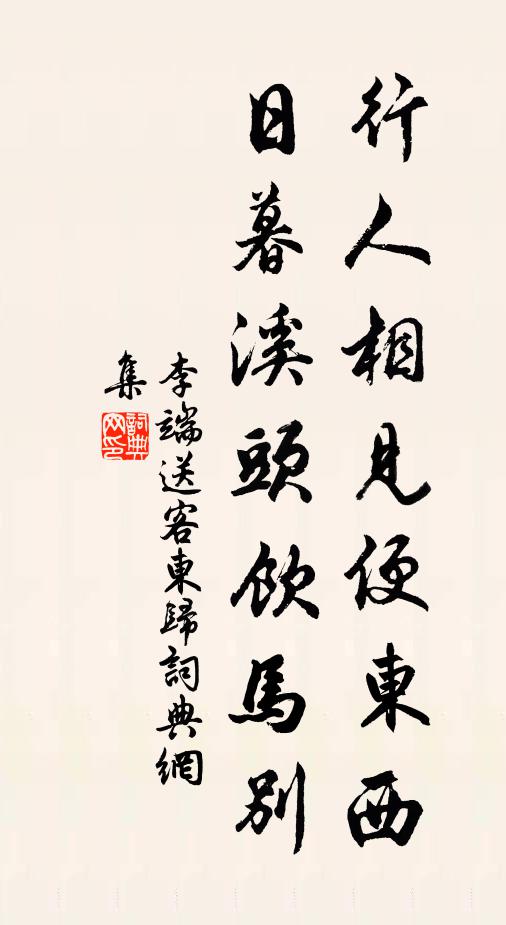 行人相見便東西
日暮溪頭飲馬別
李端送客東歸詞典網
集
詞典网印